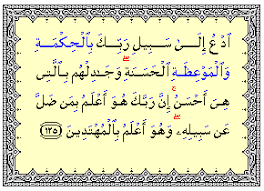 ٱدْعُ إِلَىٰ سَبِيلِ رَبِّكَ بِٱلْحِكْمَةِ
وَٱلْمَوْعِظَةِ ٱلْحَسَنَةِ ۖ وَجَٰدِلْهُم بِٱلَّتِى
هِىَ أَحْسَنُ ۚ إِنَّ رَبَّكَ هُوَ أَعْلَمُ بِمَن ضَلَّ
عَن سَبِيلِهِۦ ۖ وَهُوَ أَعْلَمُ بِٱلْمُهْتَدِينَ ﴿١٢٥﴾